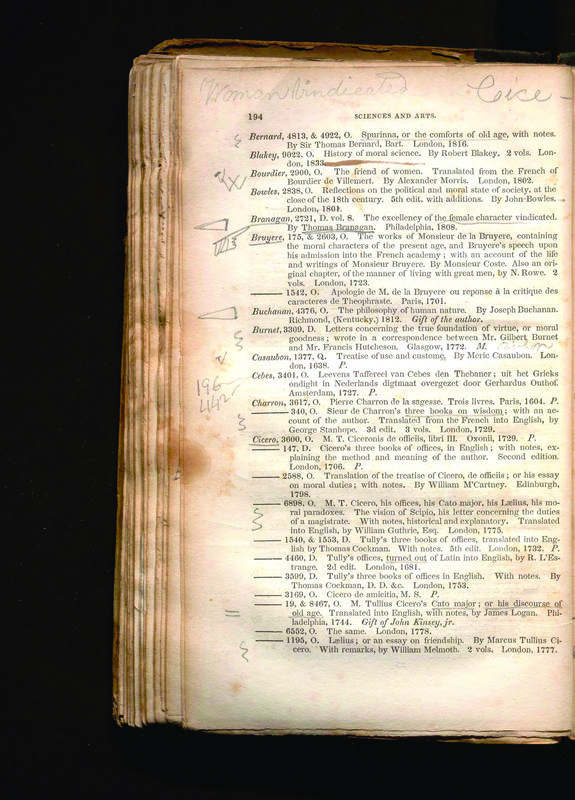 Woman Vindicated
194 SCIENCES AND ARTS.
Bernard, 4813, & 4922, O. Spurinna, or the comforts of old age, with notes.
By Sir Thomas Bernard, Bart. London, 1816.
Blakey, 9022, O. History of moral science. By Robert Blakey. 2 vols. Lon-
don, 1833.
Bourdier, 2900, O. The friend of women. Translated from the French of
Bourdier de Villemert. By Alexander Morris. London, 1802.
Bowles, 2838, O. Reflections on the political and moral state of society, at the
close of the 18th century. 5th edit. with additions. By John Bowles.
London, 1801.
Branagan, 2721, D. vol. 8. The excellency of the female character vindicated.
By Thomas Branagan. Philadelphia, 1808.
Bruyere, 175, & 2603, O. The works of Monsieur de la Bruyere, containing
the moral characters of the present age, and Bruyere's speech upon
his admission into the French academy; with an account of the life
and writings of Monsieur Bruyere. By Monsieur Coste. Also an ori-
ginal chapter, of the manner of living with great men, by N. Rowe. 2
vols. London, 1723.
—— 1542, O. Apologie de M. de la Bruyere ou reponse à la critique des
caracteres de Theophraste. Paris, 1701.
Buchanan, 4376, O. The philosophy of human nature. By Joseph Buchanan.
Richmond, (Kentucky.) 1812. Gift of the author.
Burnet, 3309, D. Letters concerning the true foundation of virtue, or moral
goodness; wrote in a correspondence between Mr. Gilbert Burnet
and Mr. Francis Hutcheson. Glasgow, 1772. M.
Casaubon, 1377, Q. Treatise of use and custome. By Meric Casaubon. Lon-
don, 1638. P.
Cebes, 3401, O. Leevens Taffereel van Cebes den Thebaner; uit het Grieks
ondight in Nederlands digtmaat overgezet door Gerhardus Outhof.
Amsterdam, 1727. P.
196
442
Charron, 3617, O. Pierre Charron de la sagesse. Trois livres. Paris, 1604. P.
—— 340, O. Sieur de Charron's three books on wisdom; with an ac-
count of the author. Translated from the French into English, by
George Stanhope. 3d edit. 3 vols. London, 1729.
Cicero, 3600, O. M. T. Ciceronis de officiis, libri III. Oxonii, 1729. P.
—— 147, D. Cicero's three books of offices, in English; with notes, ex-
plaining the method and meaning of the author. Second edition.
London, 1706. P.
—— 2588, O. Translation of the treatise of Cicero, de officiis; or his essay
on moral duties; with notes. By William M'Cartney. Edinburgh,
1798.
—— 6898, O. M. T. Cicero, his offices, his Cato major, his Lælius, his mo-
ral paradoxes. The vision of Scipio, his letter concerning the duties
of a magistrate. With notes, historical and explanatory. Translated
into English, by William Guthrie, Esq. London, 1775.
—— 1540, & 1553, D. Tully's three books of offices, translated into Eng-
lish by Thomas Cockman. With notes. 5th edit. London, 1732. P.
—— 4460, D. Tully's offices, turned out of Latin into English, by R. L'Es-
trange. 2d edit. London, 1681.
—— 3599, D. Tully's three books of offices in English. With notes. By
Thomas Cockman, D. D. &c. London, 1753.
—— 3169, O. Cicero de amicitia, M. S. P.
—— 19, & 8467, O. M. Tullius Cicero's Cato major; or his discourse of
old age. Translated into English, with notes, by James Logan. Phi-
ladelphia, 1744. Gift of John Kinsey, jr.
—— 6552, O. The same. London, 1778.
—— 1195, O. Lælius; or an essay on friendship. By Marcus Tullius Ci-
cero. With remarks, by William Melmoth. 2 vols. London, 1777.